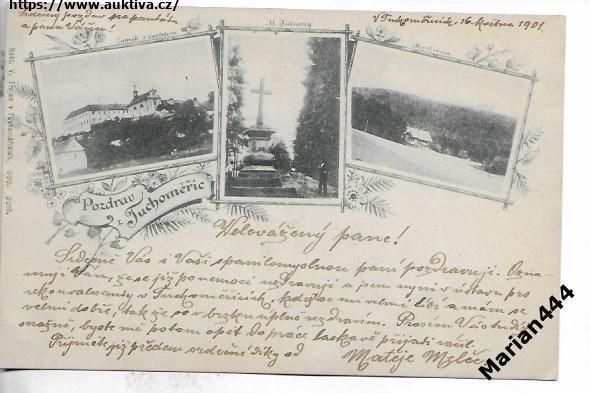 https://www.auktiva.cz/
Srdečný pozdrav
a pana Vášu!
V Tuchoměřicích, 16. května 1901.
Zámek s kostelem
U Juliany
Pozdrav
z Tuchoměřic
Velevážený pane!
Srdečně Vás i Vaši spanilomyslnou paní pozdravuji. Ozna-
muji Vám, že se již po nemoci uzdravuji a jsem nyní v ústavu pro
rekonvalescenty v Tuchoměřicích, kdež se mi velmi líbí a mám se
velmi dobře, tak že se v brzku úplně uzdravím. Prosím Vás tudíž
možné, byste mě potom opět do práce laskavě přijati ráčil.
Přijměte již předem srdečné díky od Matěje
Marian444